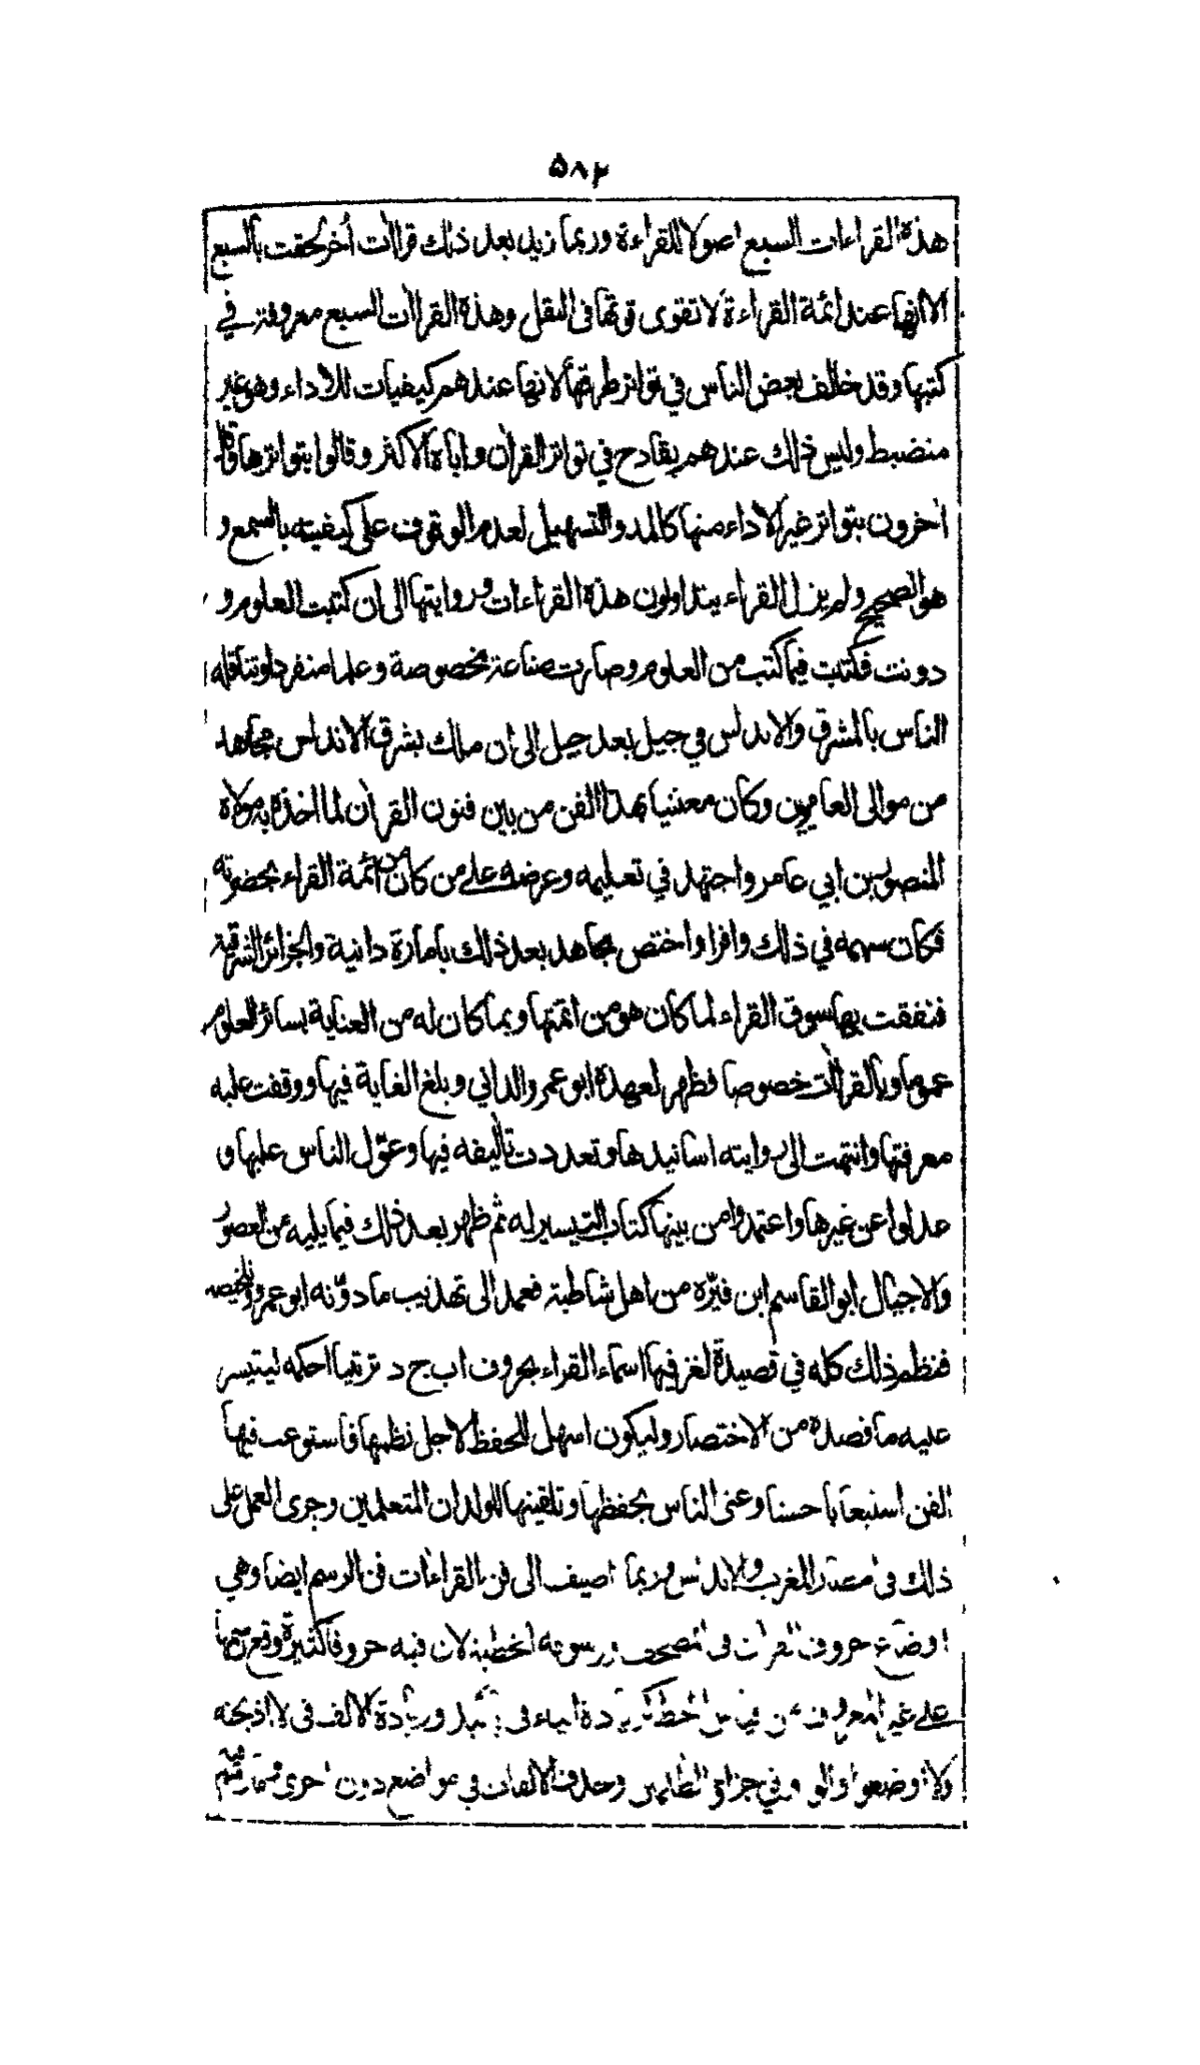 ٥٨٢
هذه القراءات السبع اصولا للقراءة وربما زيد بعد ذلك قراآت أخر لحقت بالسبع
الا انها عند ائمة القراءة لا تقوى قوتها في النقل وهذه القراآت السبع معروفة في
كتبها وقد خالف بعض الناس في تواتر طرقها لانها عندهم كيفيات للاداء وهو غير
منضبط وليس ذلك عندهم بقادح في تواتر القران واباه الاكثر وقالوا بتواترها وقال
اخرون بتواتر غير الاداء منها كالمد والتسهيل لعدم الوقوف على كيفيته بالسمع و
هو الصحيح ولم يزل القراء يتداولون هذه القراءات وروايتها الى ان كتبت العلوم و
دونت فكتبت فيما كتب من العلوم وصارت صناعة مخصوصة وعلما منفردا وتناقله
الناس بالمشرق والاندلس في جيل بعد جيل الى ان ملك بشرق الاندلس مجاهد
من موالى العامريين وكان معتنيا بهذا الفن من بين فنون القران لما اخذه به مولاه
المنصور بن ابي عامر واجتهد في تعليمه وعرضه على من كان من ائمة القراء بحضرته
فكان سهمه في ذلك وافرا واختص مجاهد بعد ذلك بامارة دانية والجزائر الشرقية
فنفقت بها سوق القراء لما كان هو من ائمتها وبما كان له من العناية بسائر العلوم
عموما وبالقراآت خصوصا فظهر لعهده ابو عمرو الداني وبلغ الغاية فيها ووقفت عليه
معرفتها وانتهت الى روايته اسانيدها وتعددت تأليفه فيها وعوّل الناس عليها و
عدلوا عن غيرها واعتمدوا من بينها كتاب التيسير له ثم ظهر بعد ذلك فيما يليه من العصور
والاجيال ابو القاسم ابن فيّره من اهل شاطبة فعمد الى تهذيب ما دوّنه ابو عمرو وتلخيصه
فنظم ذلك كله في قصيدة لغز فيها اسماء القراء بحروف اب ج د ترتيبا احكمه ليتيسر
عليه ما قصده من الاختصار وليكون اسهل للحفظ لاجل نظمها فاستوعب فيها
الفن استيعابا حسنا وعنى الناس بحفظها وتلقينها للولدان المتعلمين وجرى العمل على
ذلك في امصار المغرب والاندلس وربما اضيف الى فن القراءات فن الرسم ايضا وهي
اوضاع حروف القران في المصحف ورسومه الخطية لان فيه حروفا كثيرة وقع رسمها
على غير المعروف من قياس الخط كزيادة الياء في بأييد وزيادة الالف في لا اذبحنه
ولا اوضعوا والواو في جزاؤ الظالمين وحذف الالفات في مواضع دون اخرى وما رسم فيه